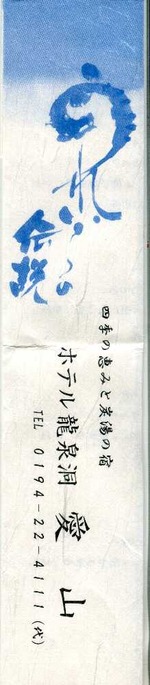 四季の恵みと炭湯の宿
ホテル龍泉洞 愛山
TEL 0194-22-4111(代)